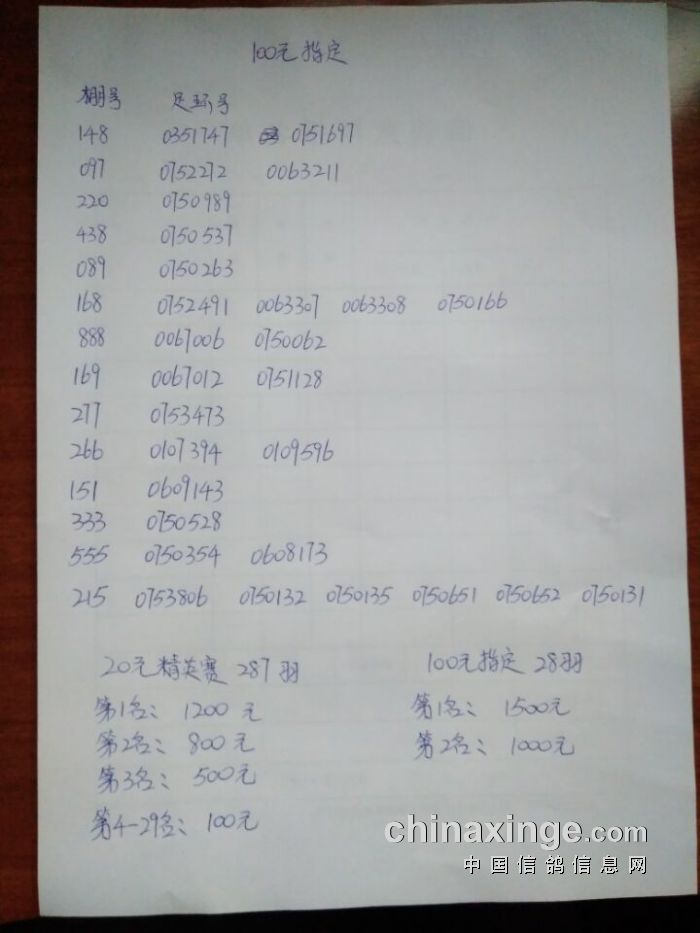 100元指定
棚号 足环号
148 0351747 0751697
097 0752272 0063211
220 0750989
438 0750537
089 0750263
168 0752491 0063307 0063308 0750166
888 0067006 0750062
169 0067012 0751128
277 0753473
266 0107394 0109596
151 0609143
333 0750528
555 0750354 0608173
215 0753806 0750132 0750135 0750651 0750652 0750131
20元精英赛 287羽 100元指定 28羽
第1名: 1200元 第1名: 1500元
第2名: 800元 第2名: 1000元
第3名: 500元
第4-29名: 100元
chinaxinge.com
中国信鸽信息网